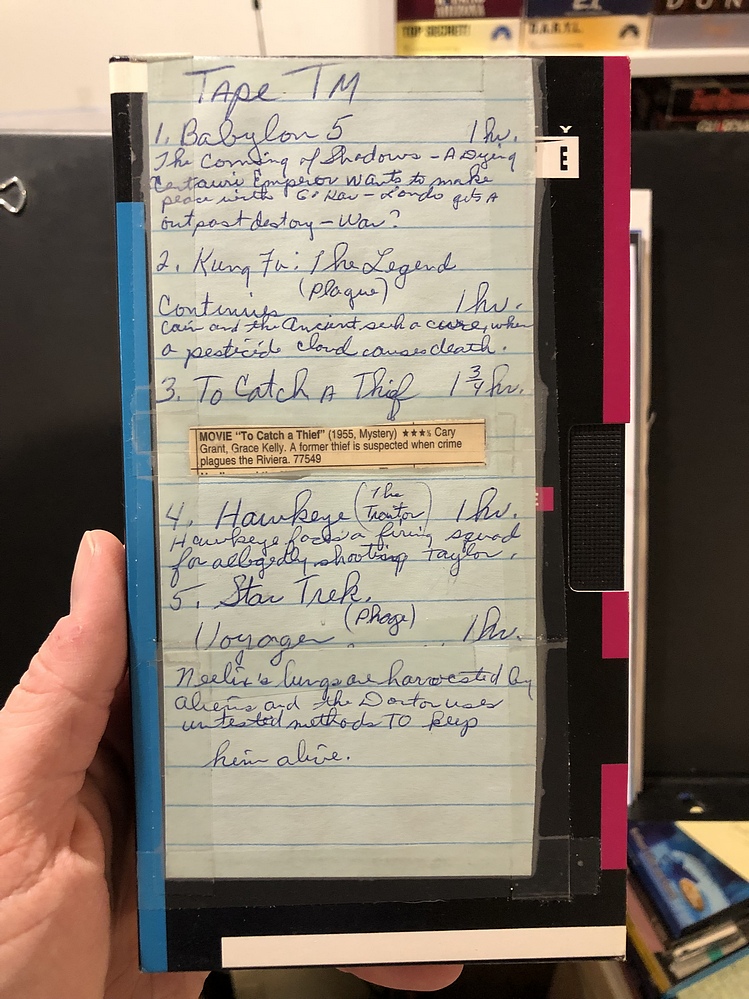 TOP SECRET!
D.A.R.Y.L.
DUN
Tape TM
1. Babylon 5 1 hr.
The Coming of Shadows - A Dying
Centauri Emperor wants to make
peace with G'Kar - Londo gets A
outpost destory - War?
2. Kung Fu: The Legend
(Plague)
Continues 1 hr.
Cain and the Ancient seek a cure, when
a pesticide cloud causes death.
3. To Catch A Thief 1 3/4 hr.
MOVIE "To Catch a Thief" (1955, Mystery) ★★★½ Cary
Grant, Grace Kelly. A former thief is suspected when crime
plagues the Riviera. 77549
4. Hawkeye (The Traitor) 1 hr.
Hawkeye faces a firing squad
for allegedly shooting Taylor.
5. Star Trek.
(Phage)
Voyager 1 hr.
Neelix's lungs are harvested by
aliens and the Doctor uses
untested methods To keep
him alive.
Y
E
E